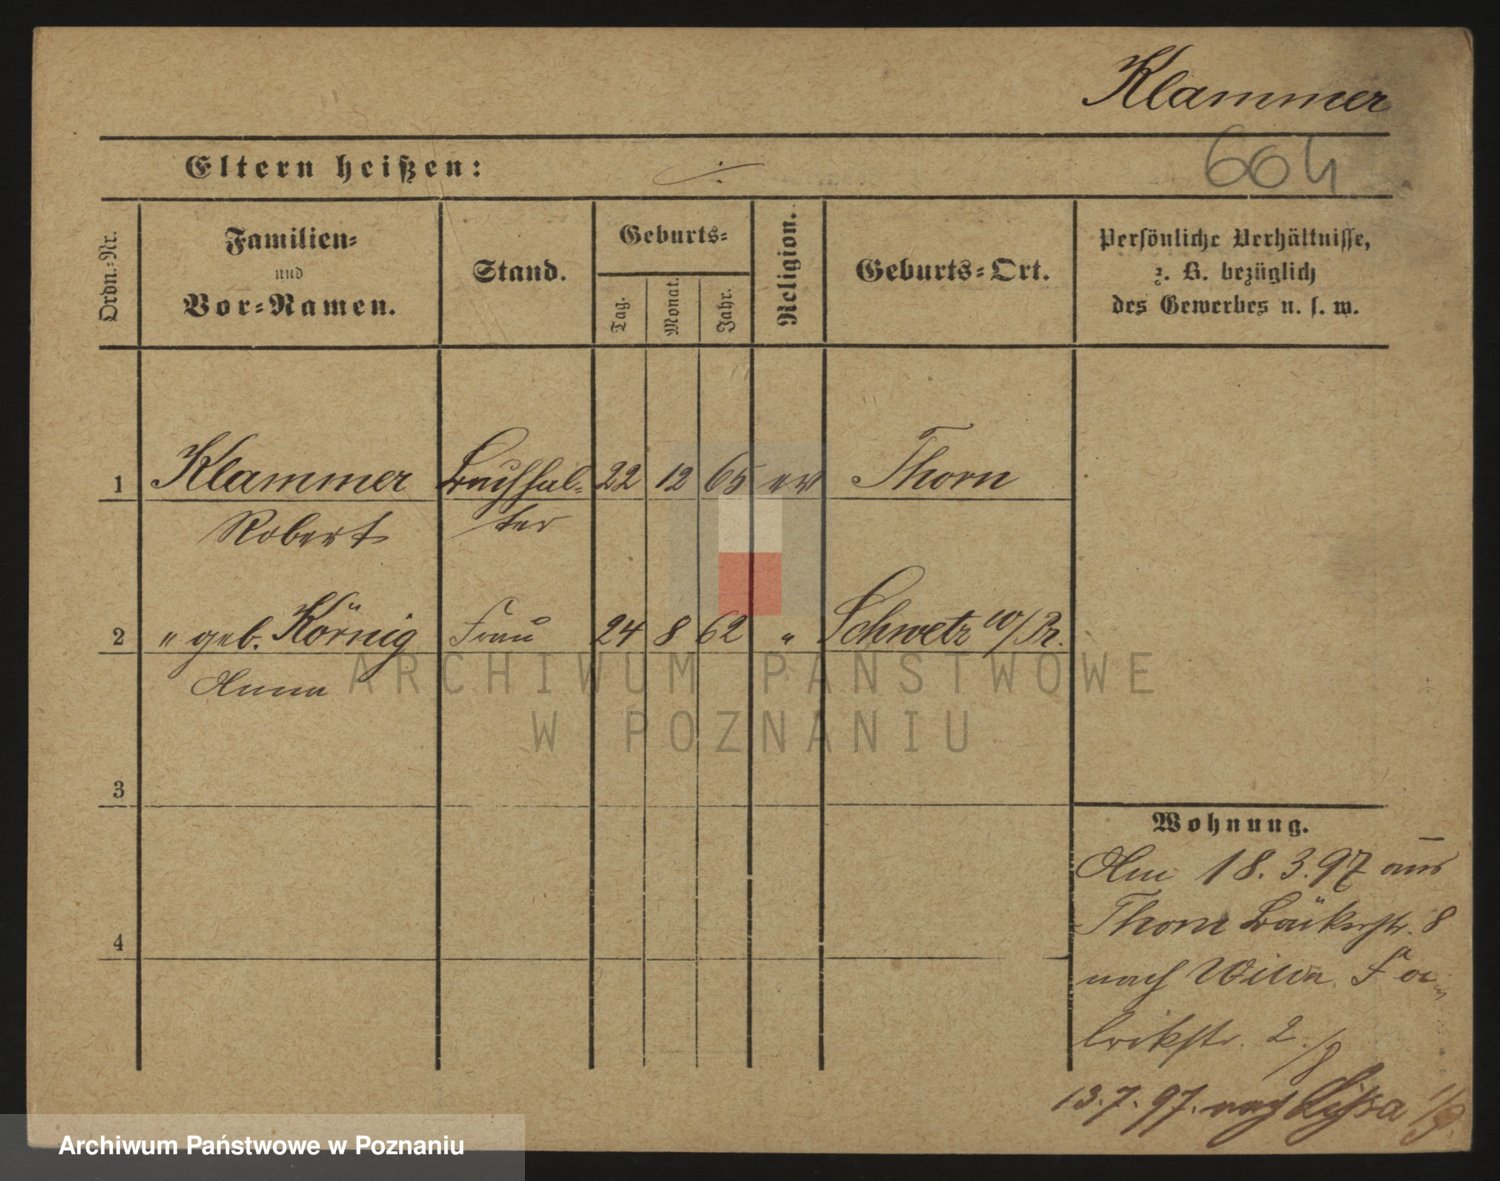 Klammer
604
Eltern heißen:
Ordn.-Nr.
Familien-
und
Vor-Namen.
Stand.
Geburts-
Tag.
Monat.
Jahr.
Religion.
Geburts-Ort.
Persönliche Verhältnisse,
z. B. bezüglich
des Gewerbes u. s. w.
1 Klammer Buchhal- 22 12 65 ev Thorn
Robert ter
2 " geb. Körnig Frau 24 8 62 " Schwetz W/Pr.
Anna
3
4
Wohnung.
Am 18.3.97 aus
Thorn Bäckerstr. 8
nach Wilda Fa-
brikstr. 2.
13.7.97. nach Lissa
ARCHIWUM PAŃSTWOWE
W POZNANIU
Archiwum Państwowe w Poznaniu